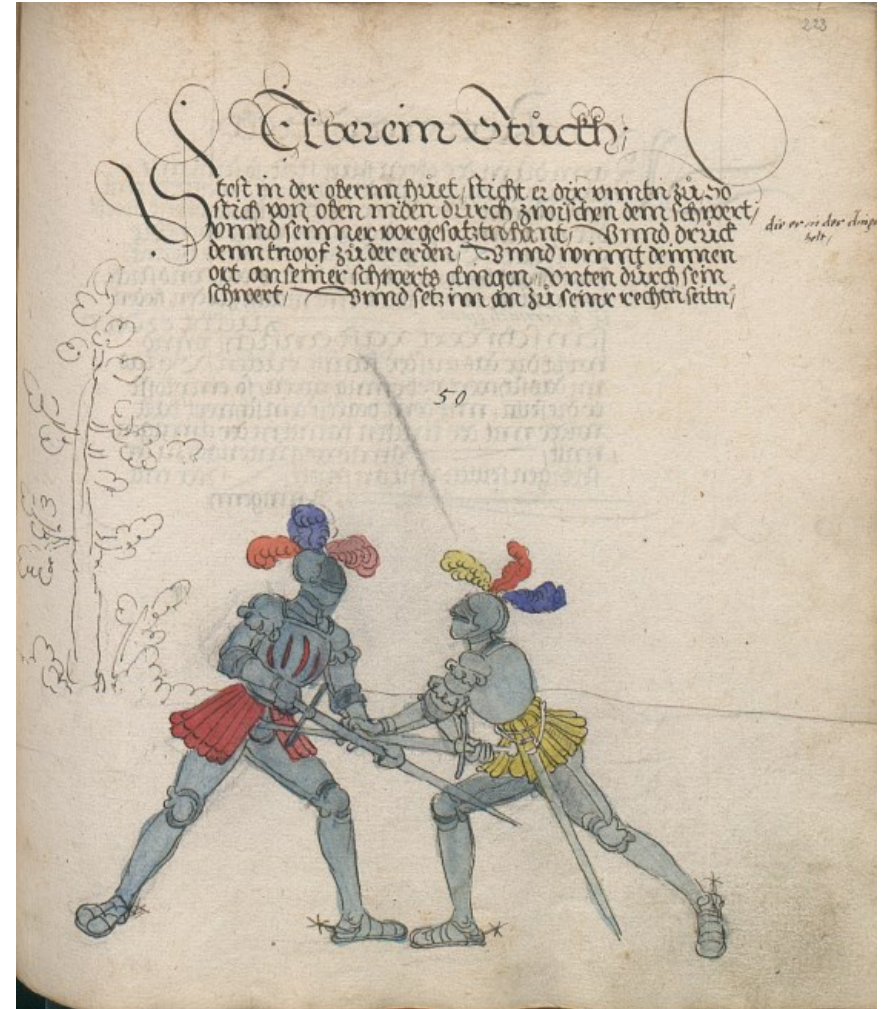 223
Aber ein Stuckh;
Stest in der obernn huet, sticht er dir vnntn zů So
stich von oben niden durch zwischen dem schwert,
vnnd seinner vorgesatztn hant, Vnnd druck
denn knopf zů der erden, Vnnd winnt deinnen
ort an seiner schwerts clingen vnten durch sein
schwert, Vnnd setz inn an zů seinr rechtn seitn,
die er in der
helt,
50